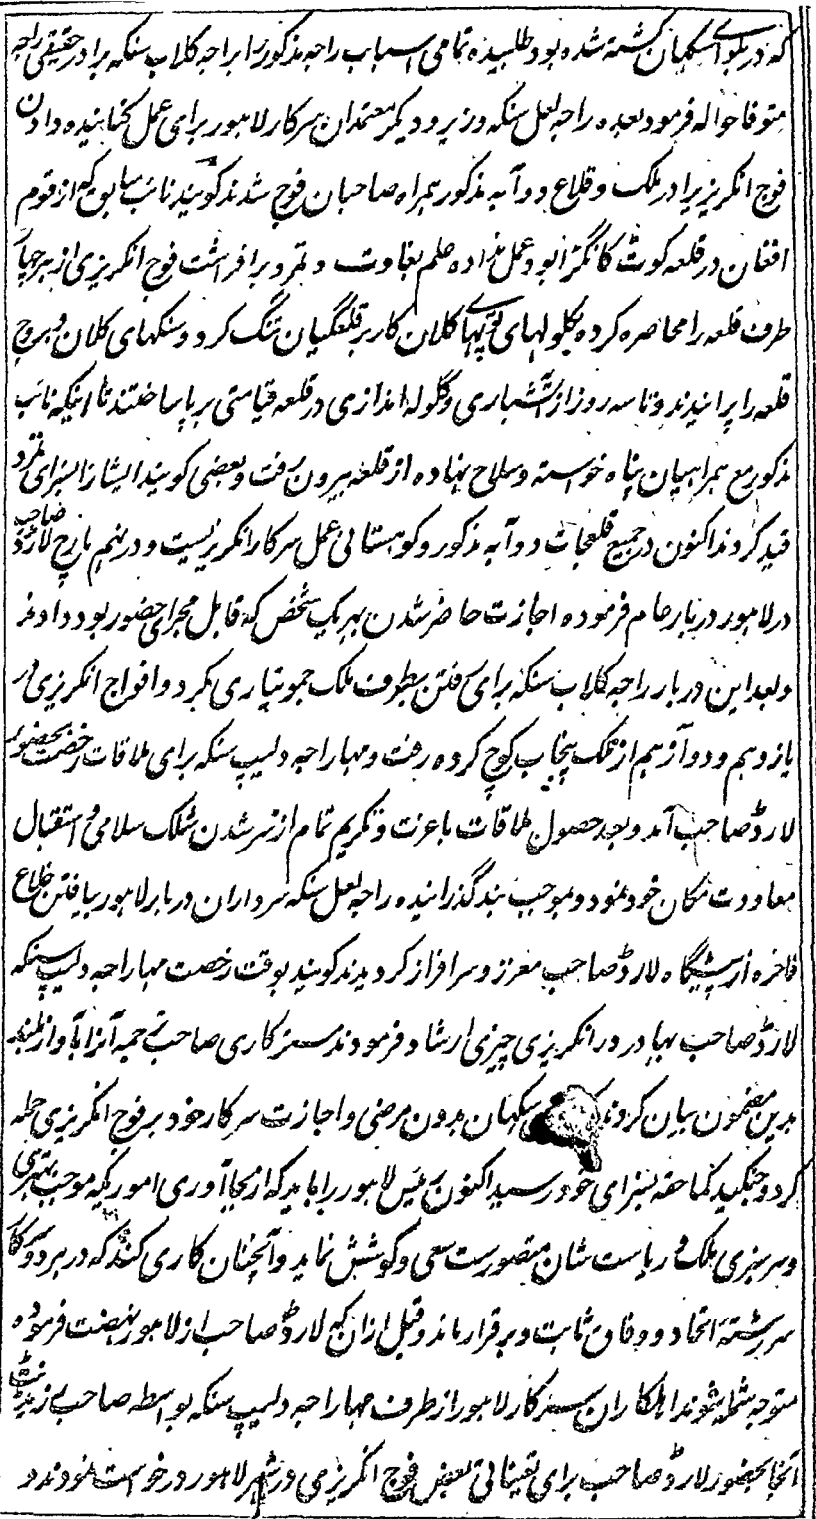 که در بلوائے سکهان کشته شده بود طلبیده تمامی اسباب راجه مذکور را براجه کلاب سنکه برادر حقیقی راجه
متوفا حواله فرمود بعده راجه لعل سنکه وزیر و دیکر معتمدان سرکار لاهور برای عمل کنانیده دادن
فوج انکریزیرا در ملک و قلاع دوآبه مذکور همراه صاحبان فوج شدند کویند نائب سابق که از قوم
افغان در قلعه کوٹ کانگڑا بود عمل نداده علم بغاوت و تمرد برافراشت فوج انکریزی از هر چهار
طرف قلعه را محاصره کرده بگولهای توپهاے کلان کار بر قلعگیان تنگ کرد و سنکهای کلان و بروج
قلعه را پرانیدند و تا سه روز از آتشباری و گوله اندازی در قلعه قیامتی برپا ساختند تا اینکه نائب
مذکور مع همراهیان پناه خواسته و سلاح نهاده از قلعه بیرون رفت و بعضی کویند ایشانرا بسزای تمرد
قید کردند اکنون در جمیع قلعجات دوآبه مذکور و کوهستانی عمل سرکار انکریزیست و در نهم مارچ لارڈ صاحب
در لاهور دربار عام فرموده اجازت حاضر شدن بهر یک شخص که قابل مجرای حضور بود دادند
و بعد این دربار راجه کلاب سنکه برای رفتن بطرف ملک جمو تیاری کرد و افواج انکریزی در
یازدهم و دوازدهم از ملک پنجاب کوچ کرده رفت و مهاراجه دلیپ سنکه برای ملاقات رخصت بحضور
لارڈ صاحب آمد و بعد حصول ملاقات باعزت و تکریم تمام از سر شدن شلک سلامی و استقبال
معاودت مکان خود نمود و بموجب نید گذرانیده راجه لعل سنکه سرداران دربار لاهور بیافتن خلاع
فاخره از پیشگاه لارڈ صاحب معزز و سرافراز کردیدند کویند بوقت رخصت مهاراجه دلیپ سنکه
لارڈ صاحب بهادر در انکریزی چیزی ارشاد فرمودند مستر کاری صاحب ترجمه آنرا بآواز بلند
بدین مضمون بیان کردند سکهان بدون مرضی و اجازت سرکار خود بر فوج انکریزی حمله
کرد و جنکید کما حقه بسزای خود رسید اکنون رئیس لاهور را باید که از بجا آوری اموریکه موجب بهتری
و سرسبزی ملک و ریاست شان متصورست سعی و کوشش نماید و آنچنان کاری کند که در هر دو سرکار
سررشته اتحاد و وفاق ثابت و برقرار ماند و قبل ازان که لارڈ صاحب از لاهور نهضت فرموده
متوجه شمله شوند اهلکاران سرکار لاهور از طرف مهاراجه دلیپ سنکه بواسطه صاحب رزیڈنٹ
آنجا بحضور لارڈ صاحب برای تعیناتی بعض فوج انکریزی در شهر لاهور درخواست نمودند و